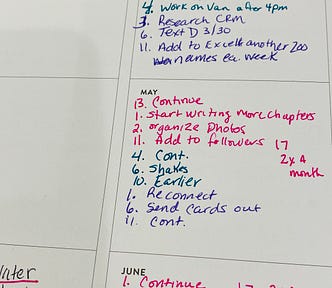 4. Work on Van after 4pm
3. Research CRM
6. Text D 3/30
11. Add to Excell another 200
names ea. week
MAY
13. Continue
1. Start writing more chapters
2. organize Photos
11. Add to followers 17
2x a
month
4. Cont.
6. Shakes
10. Earlier
1. Reconnect
6. Send Cards out
11. Cont.
JUNE
1. Continue